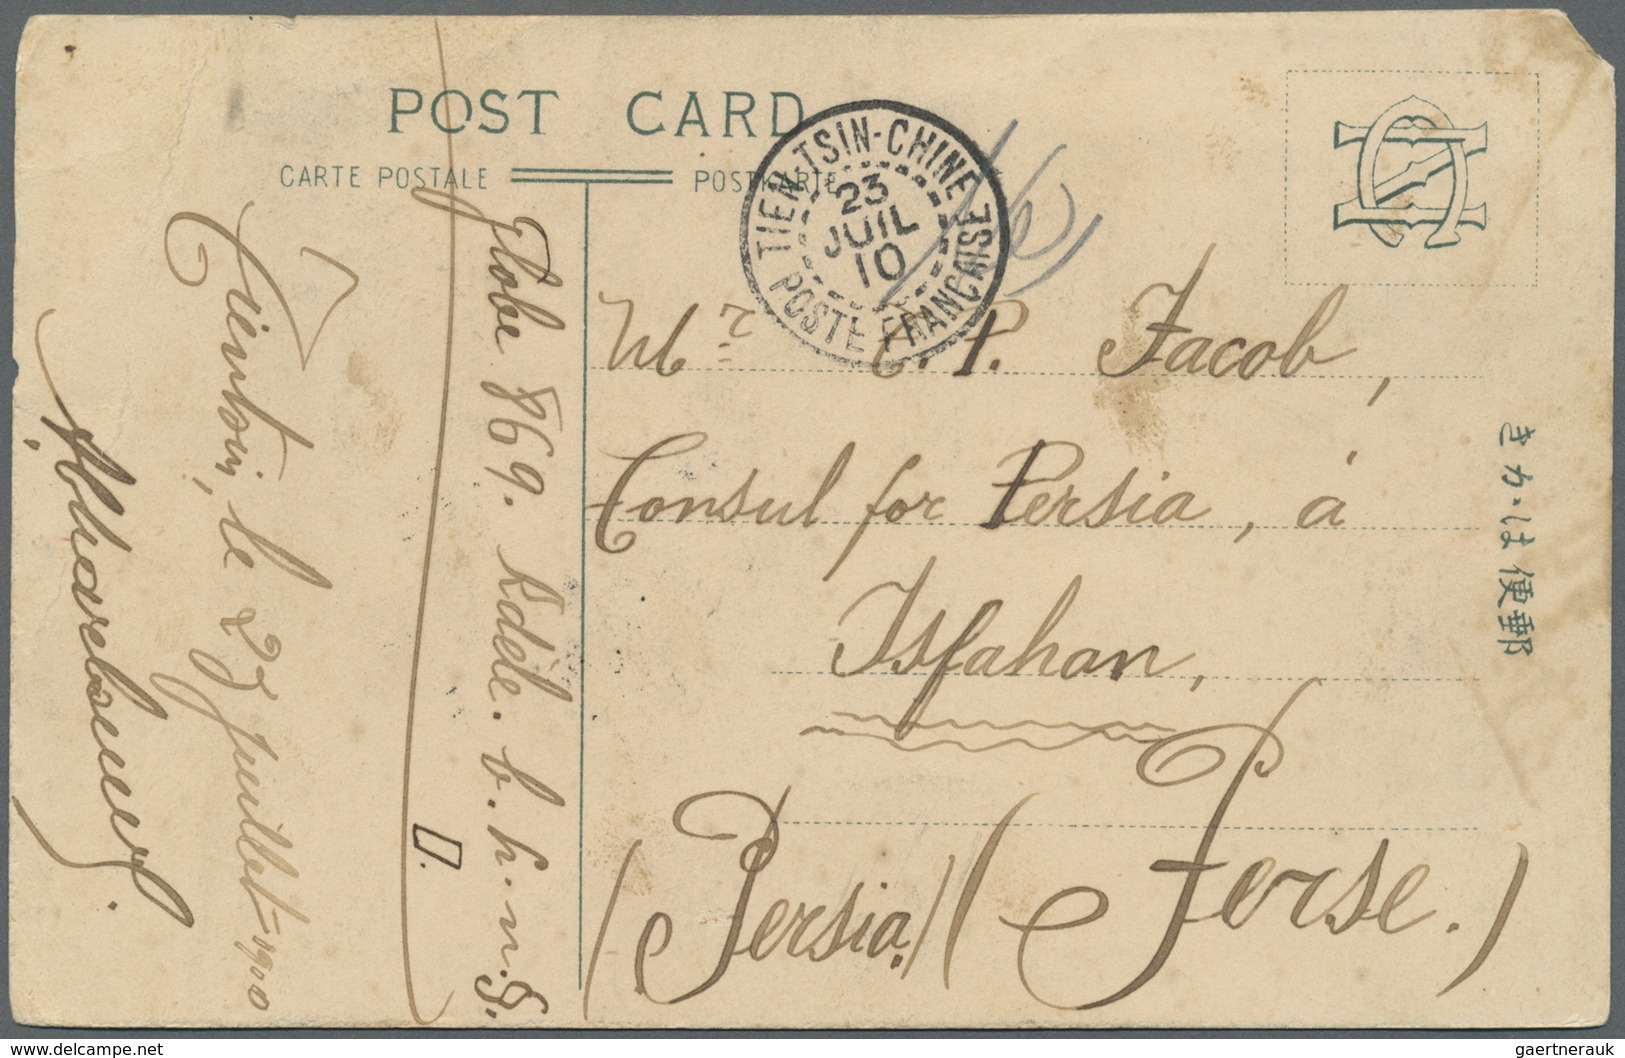 POST CARD
CARTE POSTALE
POSTKARTE
TIEN-TSIN-CHINE
23
JUIL
10
POSTE FRANCAISE
Mr. P. Jacob,
Consul for Persia, à
Isfahan,
(Persia.) (Perse.)
きかは便郵
Globe 869. Adèle. b. h. n. S.
D.
Tientsin, le 23 juillet 1900
gaertnerauk